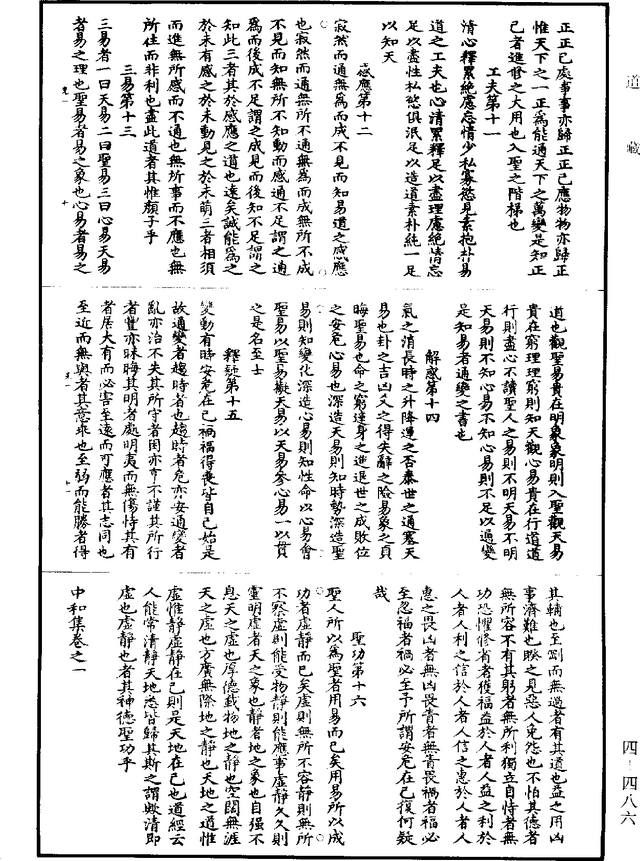 道藏
正正己處事事亦歸正正己應物物亦歸正
惟天下之一正為能通天下之萬變是知正
己者進修之大用也入聖之階梯也
工夫第十一
清心釋累絕慮忘情少私寡慾見素抱朴易
道之工夫也心清累釋足以盡理慮絕情忘
足以盡性私慾俱泯足以造道素朴純一足
以知天
感應第十二
寂然而通無為而成不見而知易道之感應
也寂然而通無所不通無為而成無所不成
不見而知無所不知動而感通不足謂之通
為而後成不足謂之成見而後知不足謂之
知此三者其於感應之道也遠矣誠能為之
於未有感之於未動見之於未萌三者相須
而進無所感而不通也無所事而不應也無
所住而非利也盡此道者其惟顏子乎
三易第十三
三易者一曰天易二曰聖易三曰心易天易
者易之理也聖易者易之象也心易者易之
道也觀聖易貴在明象象明則入聖觀天易
貴在窮理理窮則知天觀心易貴在行道道
行則盡心不讀聖人之易則不明天易不明
天易則不知心易不知心易則不足以通變
是知易者通變之書也
解惑第十四
氣之消長時之升降運之否泰世之通塞天
易也卦之吉凶爻之得失辭之險易象之貞
晦聖易也命之窮達身之進退世之成敗位
之安危心易也深造天易則知時勢深造聖
易則知變化深造心易則知性命以心易會
聖易以聖易擬天易以天易參心易一以貫
之是名至士
釋疑第十五
變動有時安危在己禍福得喪皆自己始是
故通變者趨時者也趨時者危亦安通變者
亂亦治不失其所守者困亦亨不謹其所行
者豐亦昧晦其明者處明夷而無傷恃其有
者居大有而必害至遠而可應者其志同也
至近而無與者其意乖也至弱而能勝者得
其輔也至剛而無過者有其道也益之用凶
事濟難也睽之見惡人免怨也不怕其德者
無所容不有其躬者無所利獨立自恃者無
功恐懼修省者獲福益於人者人益之利於
人者人利之信於人者人信之惠於人者人
惠之畏凶者無凶畏眚者無眚畏禍者福必
至忽福者禍必至予所謂安危在己復何疑
哉
聖功第十六
聖人所以為聖者用易而已矣用易所以成
功者虛靜而已矣虛則無所不容靜則無所
不察虛則能受物靜則能應事虛靜久久則
靈明虛者天之象也靜者地之象也自強不
息天之虛也厚德載物地之靜也空闊無涯
天之虛也方廣無際地之靜也天地之道惟
虛惟靜虛靜在己則是天地在己也道經云
人能常清靜天地悉皆歸其斯之謂歟清即
虛也虛靜也者其神德聖功乎
中和集卷之一
四-四八六